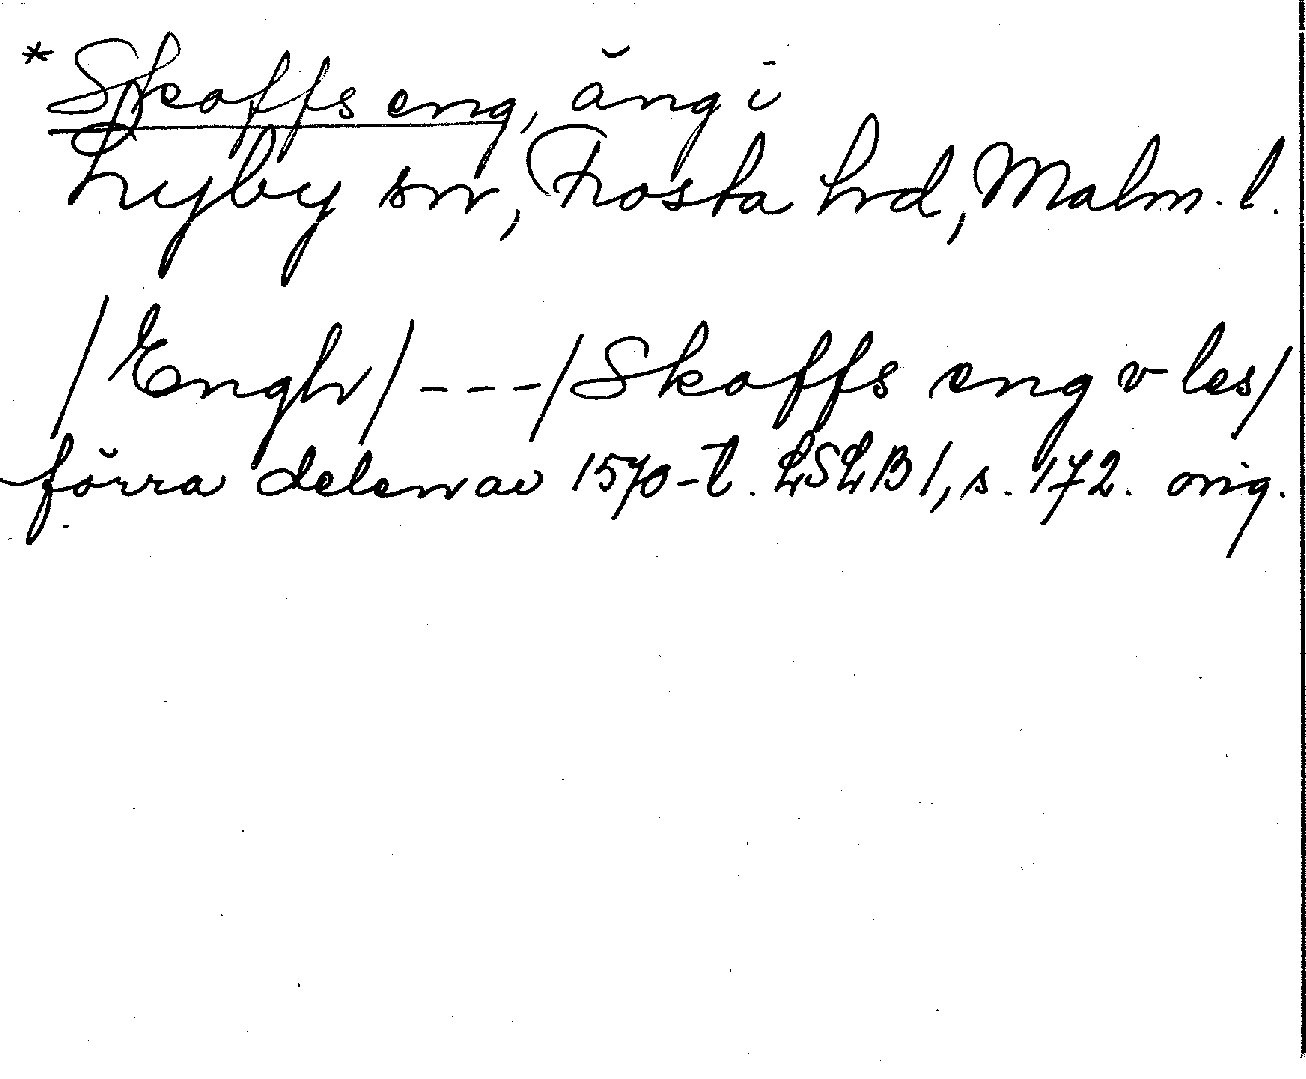 *Skoffs eng, äng i
Lyby sn, Frosta hd, Malm. l.
/Engh/ - - - /Skoffs eng v les/
förra delen av 1570-t. LSLB 1, s. 172. orig.